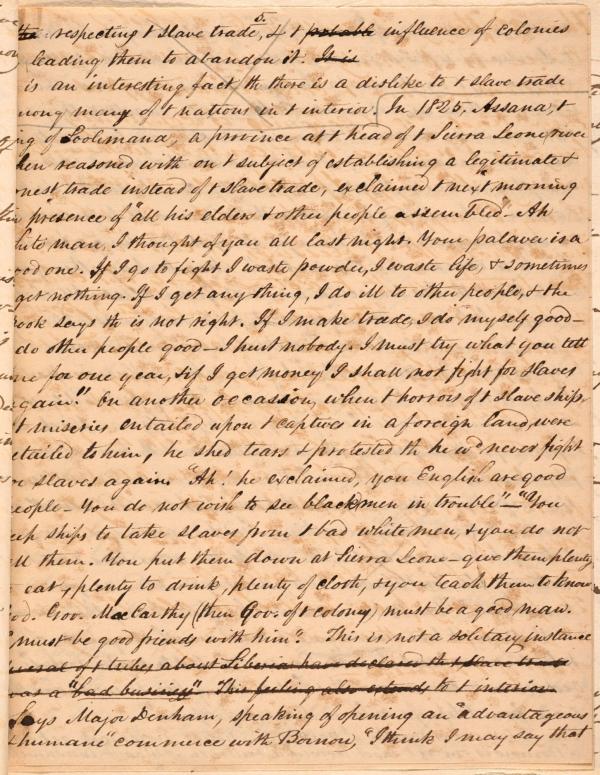 5.
the respecting t slave trade, & t probable influence of colonies
leading them to abandon it. It is
is an interesting fact th there is a dislike to t slave trade
mong many of t nations in t interior. In 1825 Assana, t
ng of Soolimana, a province at t head of t Sierra Leone river
hen reasoned with on t subject of establishing a legitimate &
nest trade instead of t slave trade, exclaimed t next morning
presence of "all his elders & other people assembled" - Ah
hite man, I thought of you all last night. Your palaver is a
ood one. If I go to fight I waste powder, I waste life, & sometimes
get nothing. If I get any thing, I do ill to other people, & the
ook says th is not right. If I make trade, I do myself good -
do other people good - I hurt nobody. I must try what you tell
me for one year, & if I get money I shall not fight for slaves
again." On another occasion, when t horrors of t slave ships
t miseries entailed upon t captives in a foreign land, were
etailed to him, he shed tears & protested th he wd never fight
slaves again. "Ah! he exclaimed, you English are good
eople - You do not wish to see black men in trouble" - "You
ships to take slaves from t bad white men, & you do not
ll them. You put them down at Sierra Leone - give them plenty
eat, plenty to drink, plenty of cloth, & you teach them to know
od. Gov. MacCarthy (then Gov. of t colony) must be a good man.
I must be good friends with him". This is not a solitary instance
several of t tribes about Liberia have declared th t slave trade
was a "bad business" This feeling also extends to t interior.
Says Major Denham, speaking of opening an "advantageous
& humane" commerce with Bornou, "I think I may say that